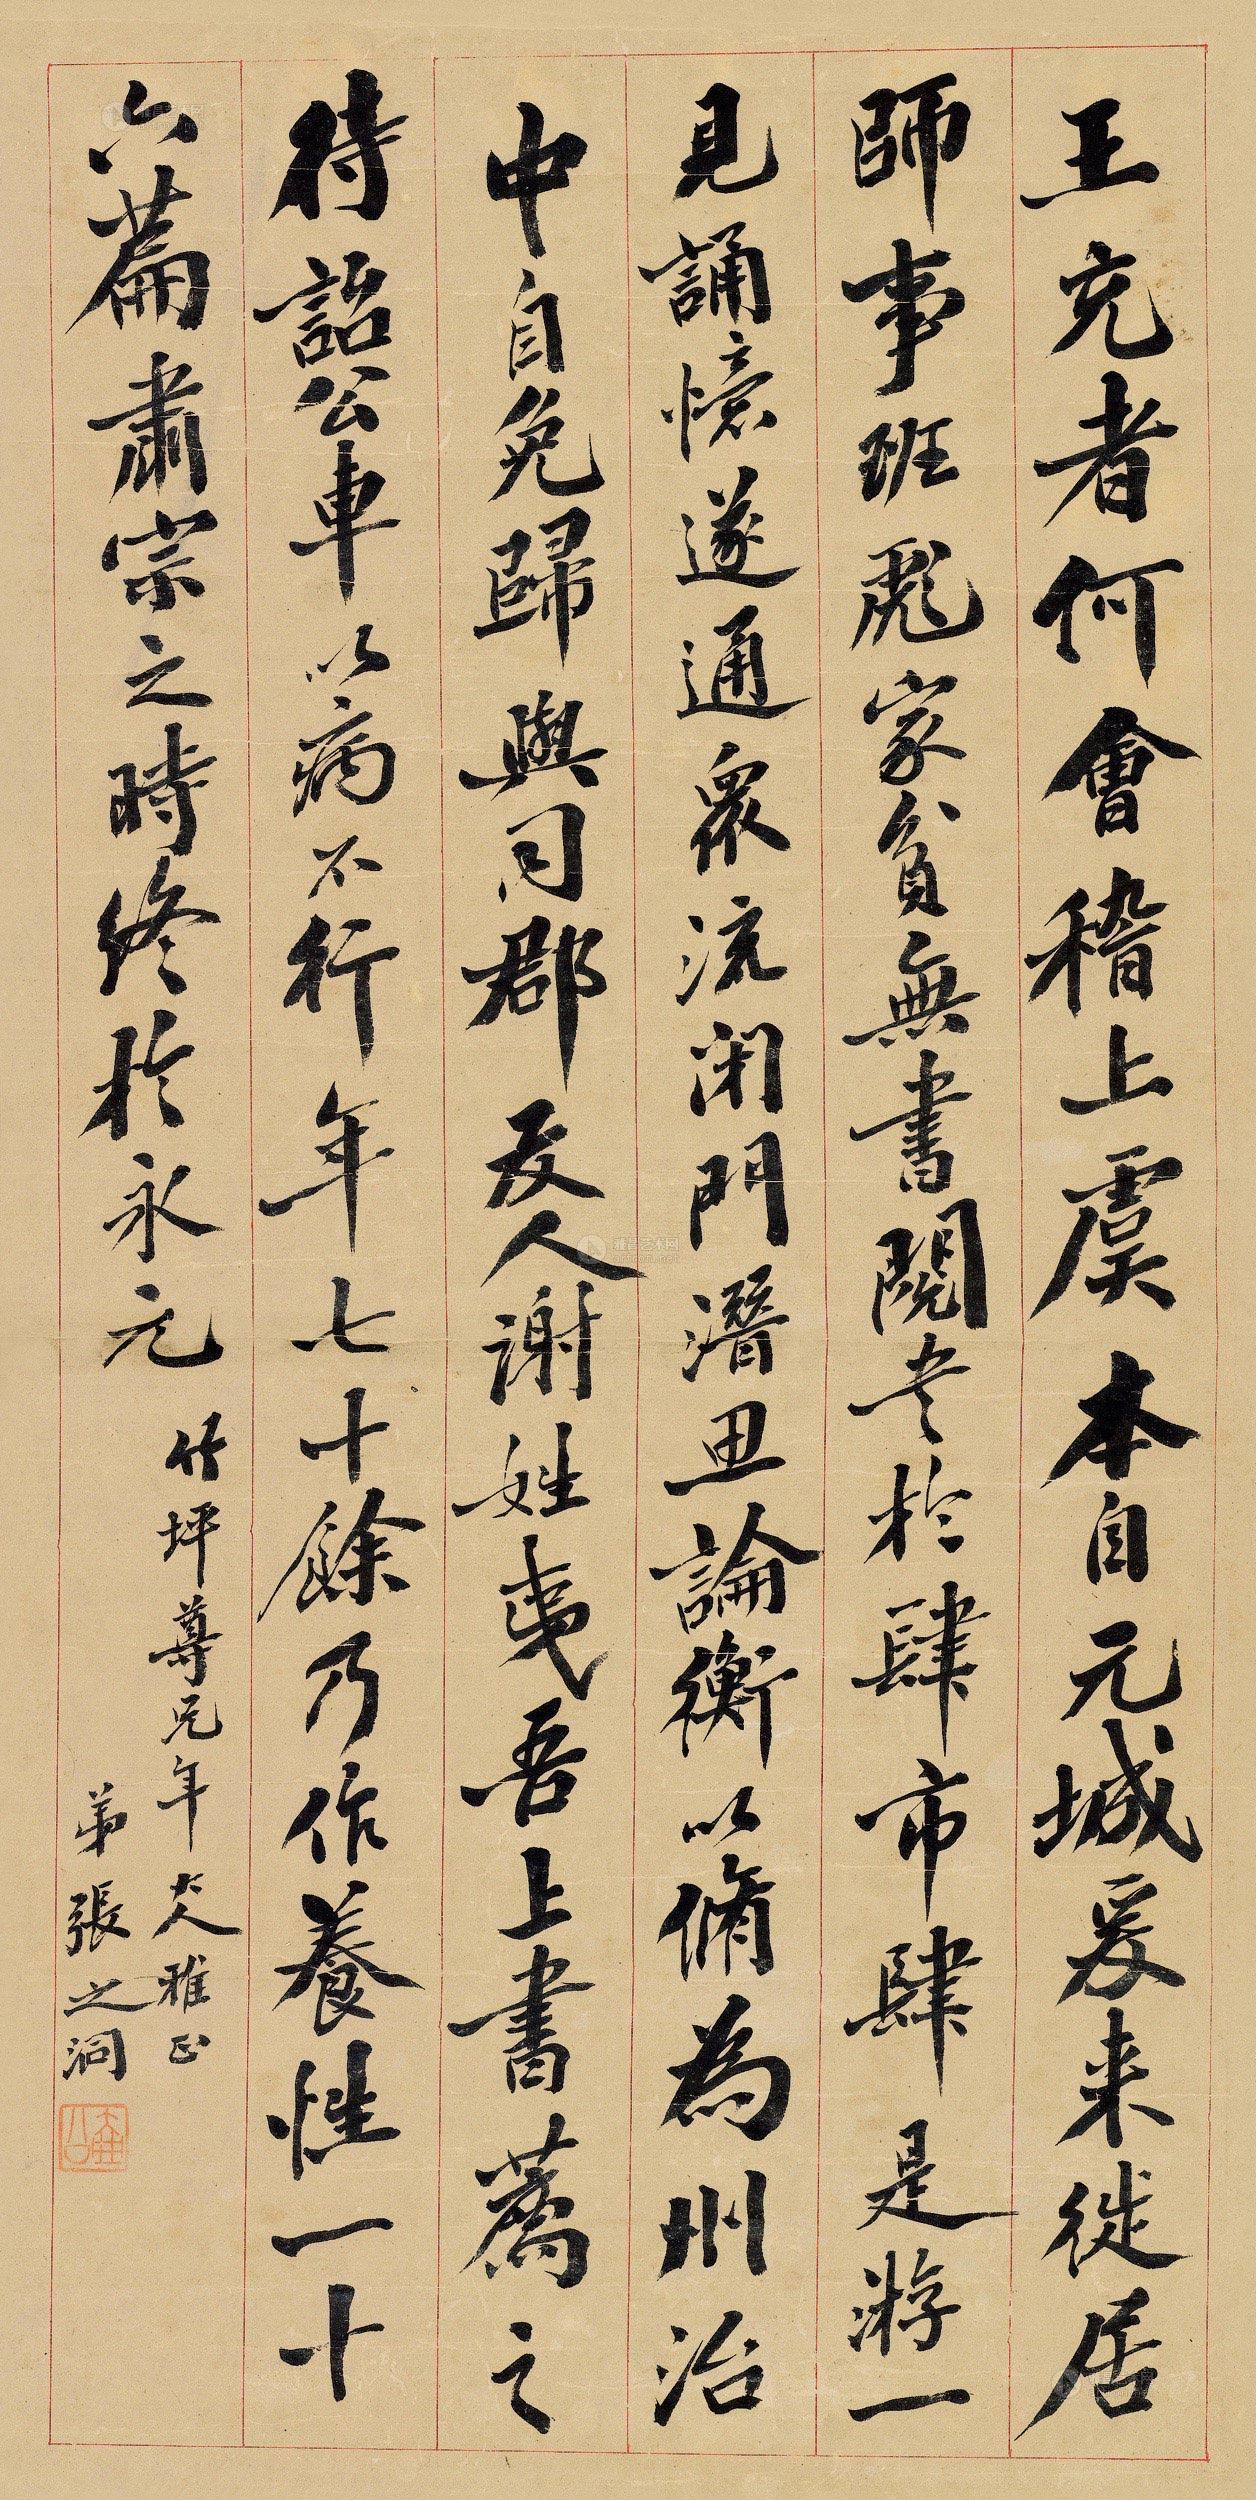 王充者何會稽上虞本自元城爰来徙居
師事班彪家貧無書閱书於肆市肆是游一
見誦憶遂通衆流闭門潛思論衡以脩為州治
中自免歸與同郡友人謝姓夷吾上書薦之
待詔公車以病不行年七十餘乃作養性一十
六篇肅宗之時終於永元
竹坪尊兄年大人雅正
弟張之洞